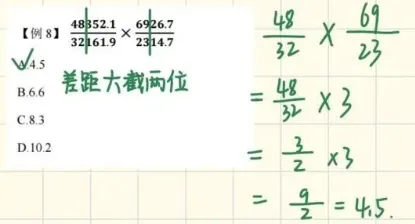 【例 8】 48352.1/32161.9 × 6926.7/2314.7
A.4.5
B.6.6
C.8.3
D.10.2
差距大截两位
48/32 × 69/23
= 48/32 × 3
= 3/2 × 3
= 9/2 = 4.5.